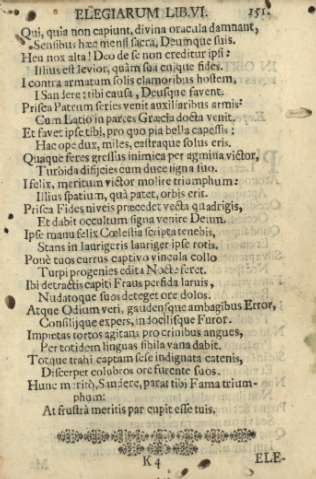 ELEGIARUM LIB.VI. 151.
Qui, quia non capiunt, divina oracula damnant,
Sensibus hæc mensi sacra, Deumque suis.
Heu nox alta! Deo de se non creditur ipsi:
Illius est levior, quàm sua cuique fides.
I contra armatum solis clamoribus hostem,
I Sandere: tibi causa, Deusque favent.
Prisca Patrum series venit auxiliaribus armis:
Cum Latio in partes Græcia docta venit.
Et favet ipse tibi, pro quo pia bella capessis:
Hac ope dux, miles, castraque solus eris.
Quaque feres gressus inimica per agmina victor,
Turbida disjicies cum duce signa suo.
I felix, meritum victor molire triumphum:
Illius spatium, quà patet, orbis erit.
Prisca Fides niveis præcedet vecta quadrigis,
Et dabit occultum signa venire Deum.
Ipse manu felix Cœlestia scripta tenebis,
Stans in laurigeris lauriger ipse rotis.
Ponè tuos currus captivo vincula collo
Turpi progenies edita Nocte feret.
Ibi detractis capiti Fraus perfida larvis,
Nudatoque suos deteget ore dolos.
Atque Odium veri, gaudensque ambagibus Error,
Consiliique expers, indocilisque Furor.
Impietas tortos agitans pro crinibus angues,
Per totidem linguas sibila vana dabit.
Totque trahi captam sese indignata catenis,
Discerpet colubros ore furente suos.
Hunc meritò, Sandere, parat tibi Fama trium-
phum:
At frustrà meritis par cupit esse tuis.
K 4 ELE-